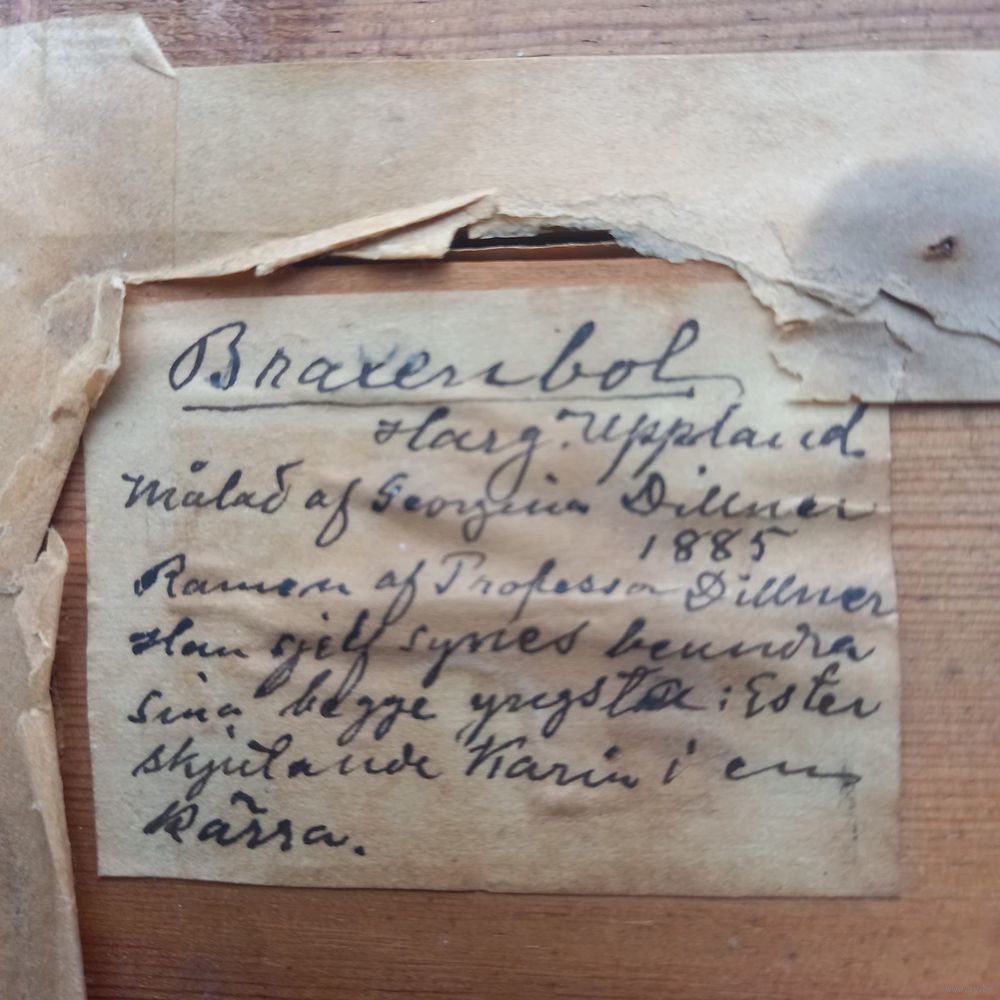 Braxenbol
Harg. Uppland
Målad af Georgina Dillner
1885
Ramen af Professor Dillner
Han sjelf synes beundra
sina begge yngsta: Ester
skjutande Karin i en
kärra.